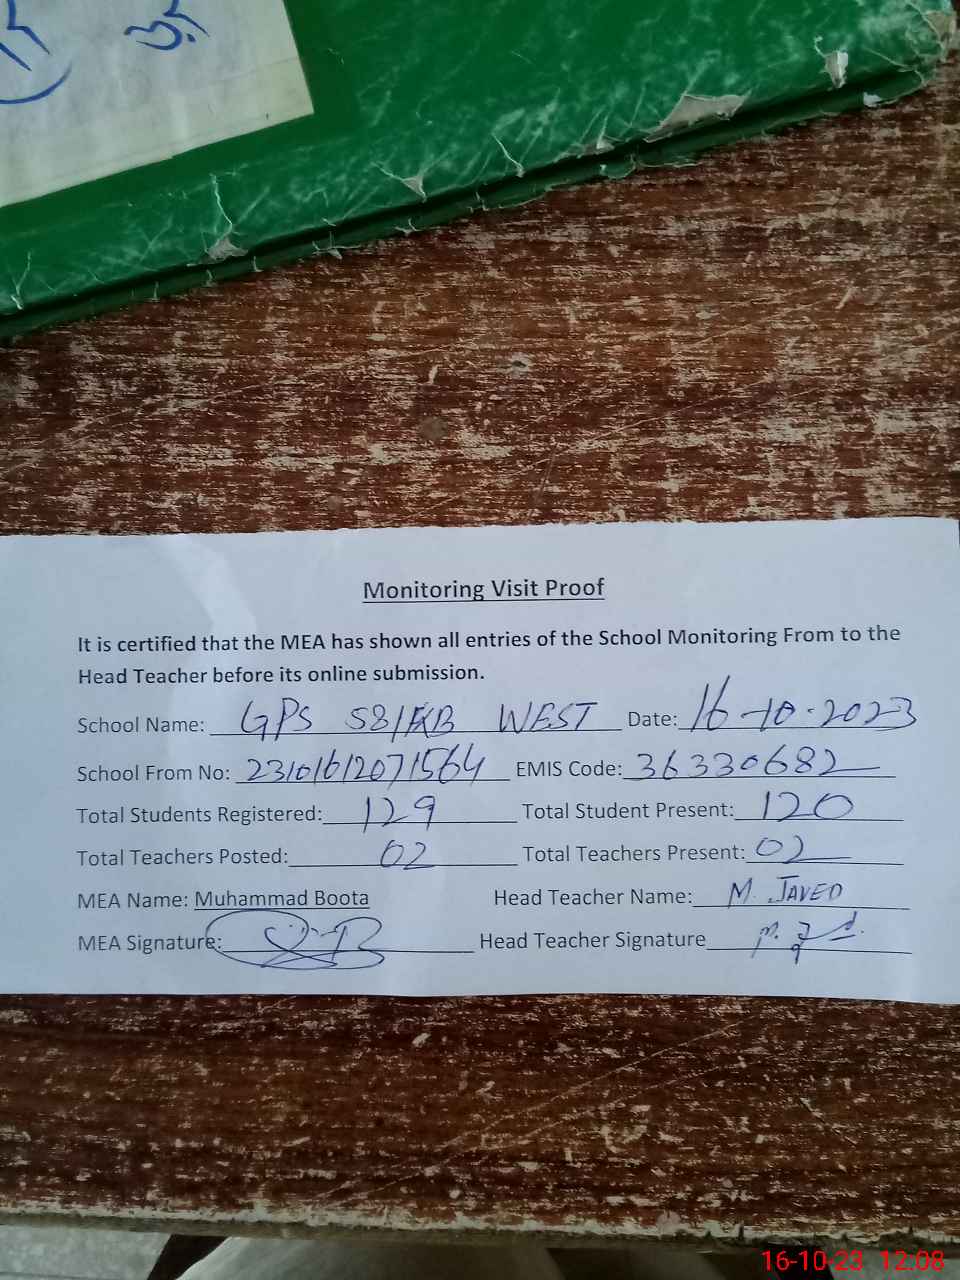 Monitoring Visit Proof
It is certified that the MEA has shown all entries of the School Monitoring From to the
Head Teacher before its online submission.
School Name: GPS 58/ WEST Date: 16-10-2023
School From No: 23101612071564 EMIS Code: 36330682
Total Students Registered: 129 Total Student Present: 120
Total Teachers Posted: 02 Total Teachers Present: 02
MEA Name: Muhammad Boota Head Teacher Name: M. JAVED
MEA Signature: Head Teacher Signature
16-10-23 12:08